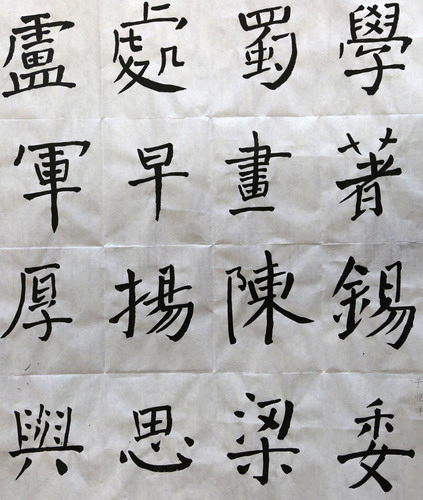 學著錫委
蜀畫陳梁
處早揚思
盧軍厚與